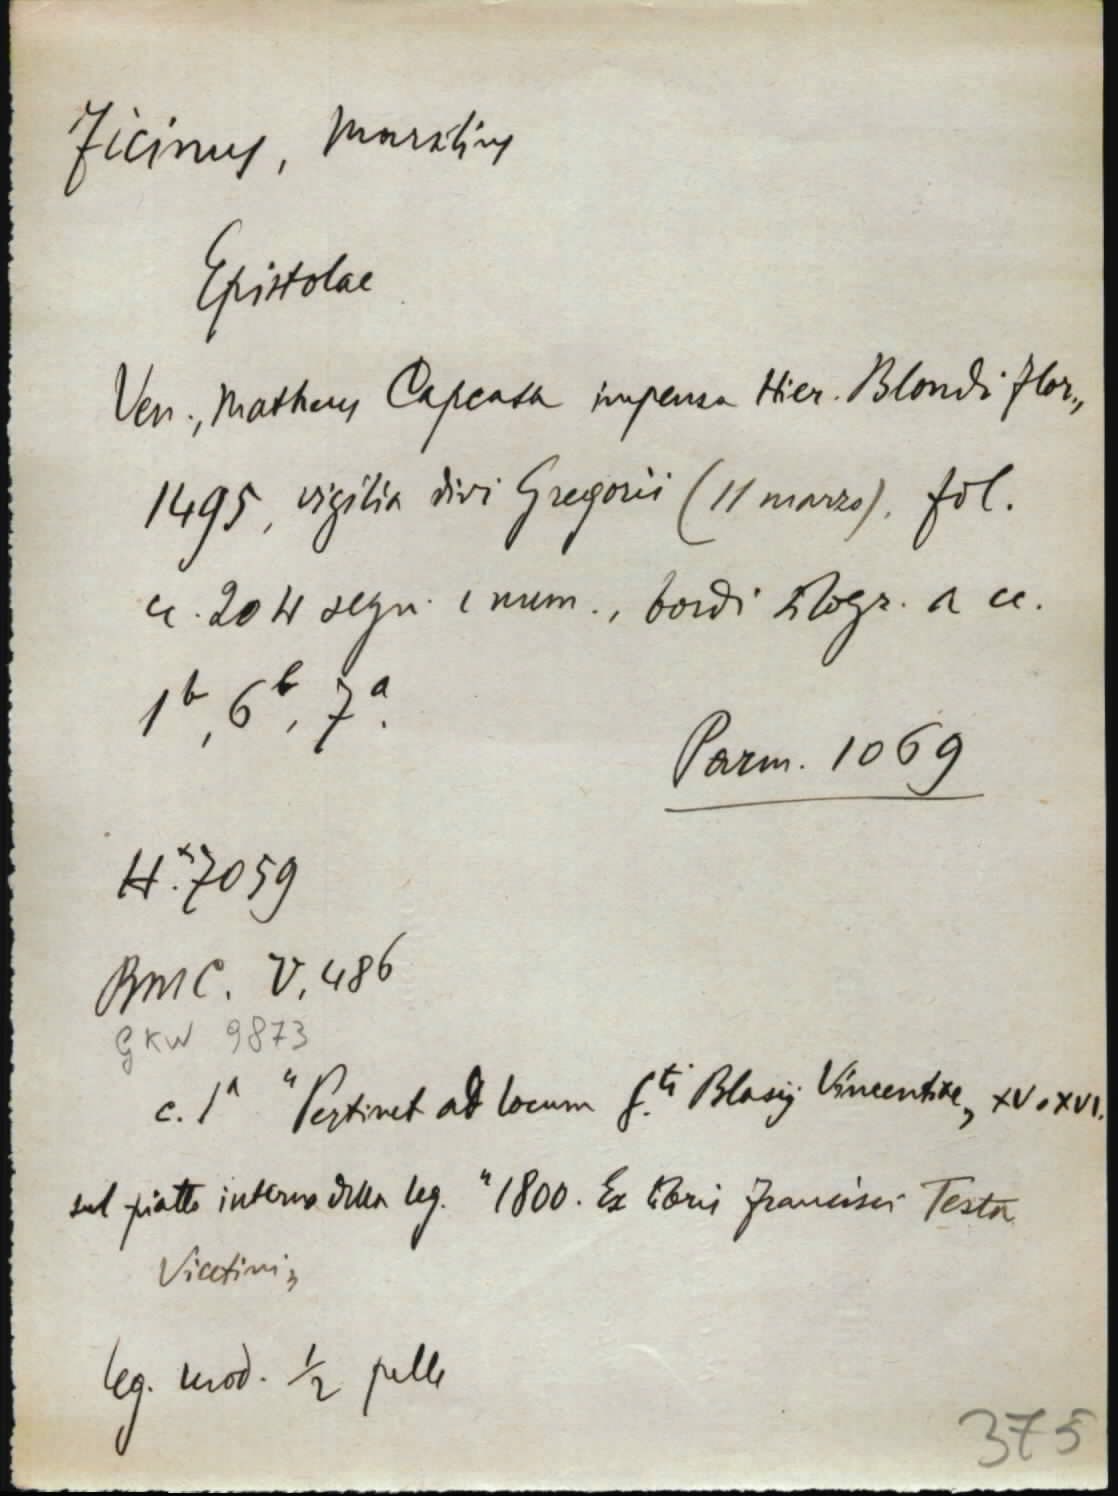 Ficinus, Marsilius
Epistolae
Ven., Matheus Capcasa impensa Hier. Blondi Flor.,
1495, vigilia divi Gregorii (11 marzo). fol.
cc. 204 segn. e num., bordi xilogr. a cc.
1b, 6b, 7a.
Parm. 1069
H.x7059
BMC. V, 486
GKW 9873
c. 1a "Pertinet ad locum S.ti Blasij Vincentiae„ XV o XVI.
sul piatto interno della leg. "1800. Ex libris Francisci Testa
Vicetini„
leg. mod. 1/2 pelle
375